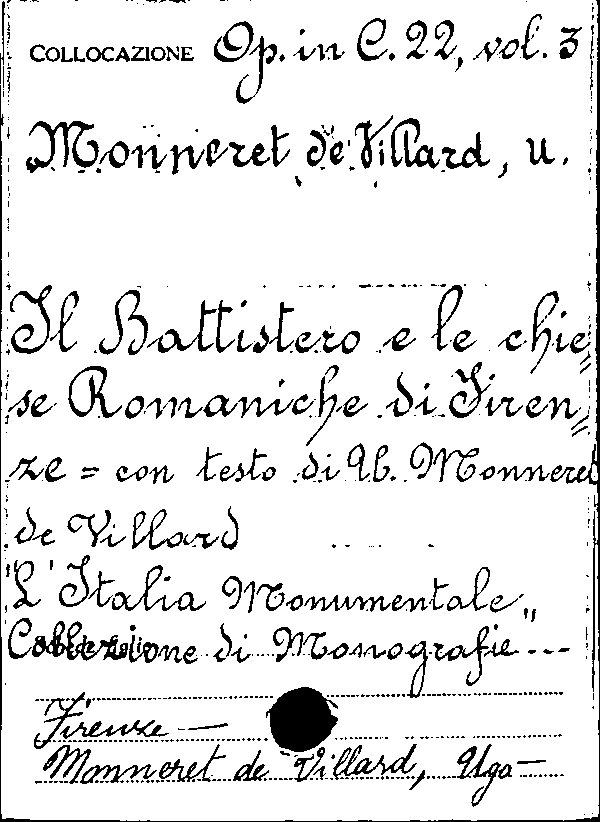 COLLOCAZIONE Op. in C. 22, vol. 3
Monneret de Villard, U.
Il Battistero e le chie=
se Romaniche di Firen=
ze = con testo di Ub. Monneret
de Villard
"L'Italia Monumentale„
Collezione di Monografie ---
Firenze —
Monneret de Villard, Ugo —